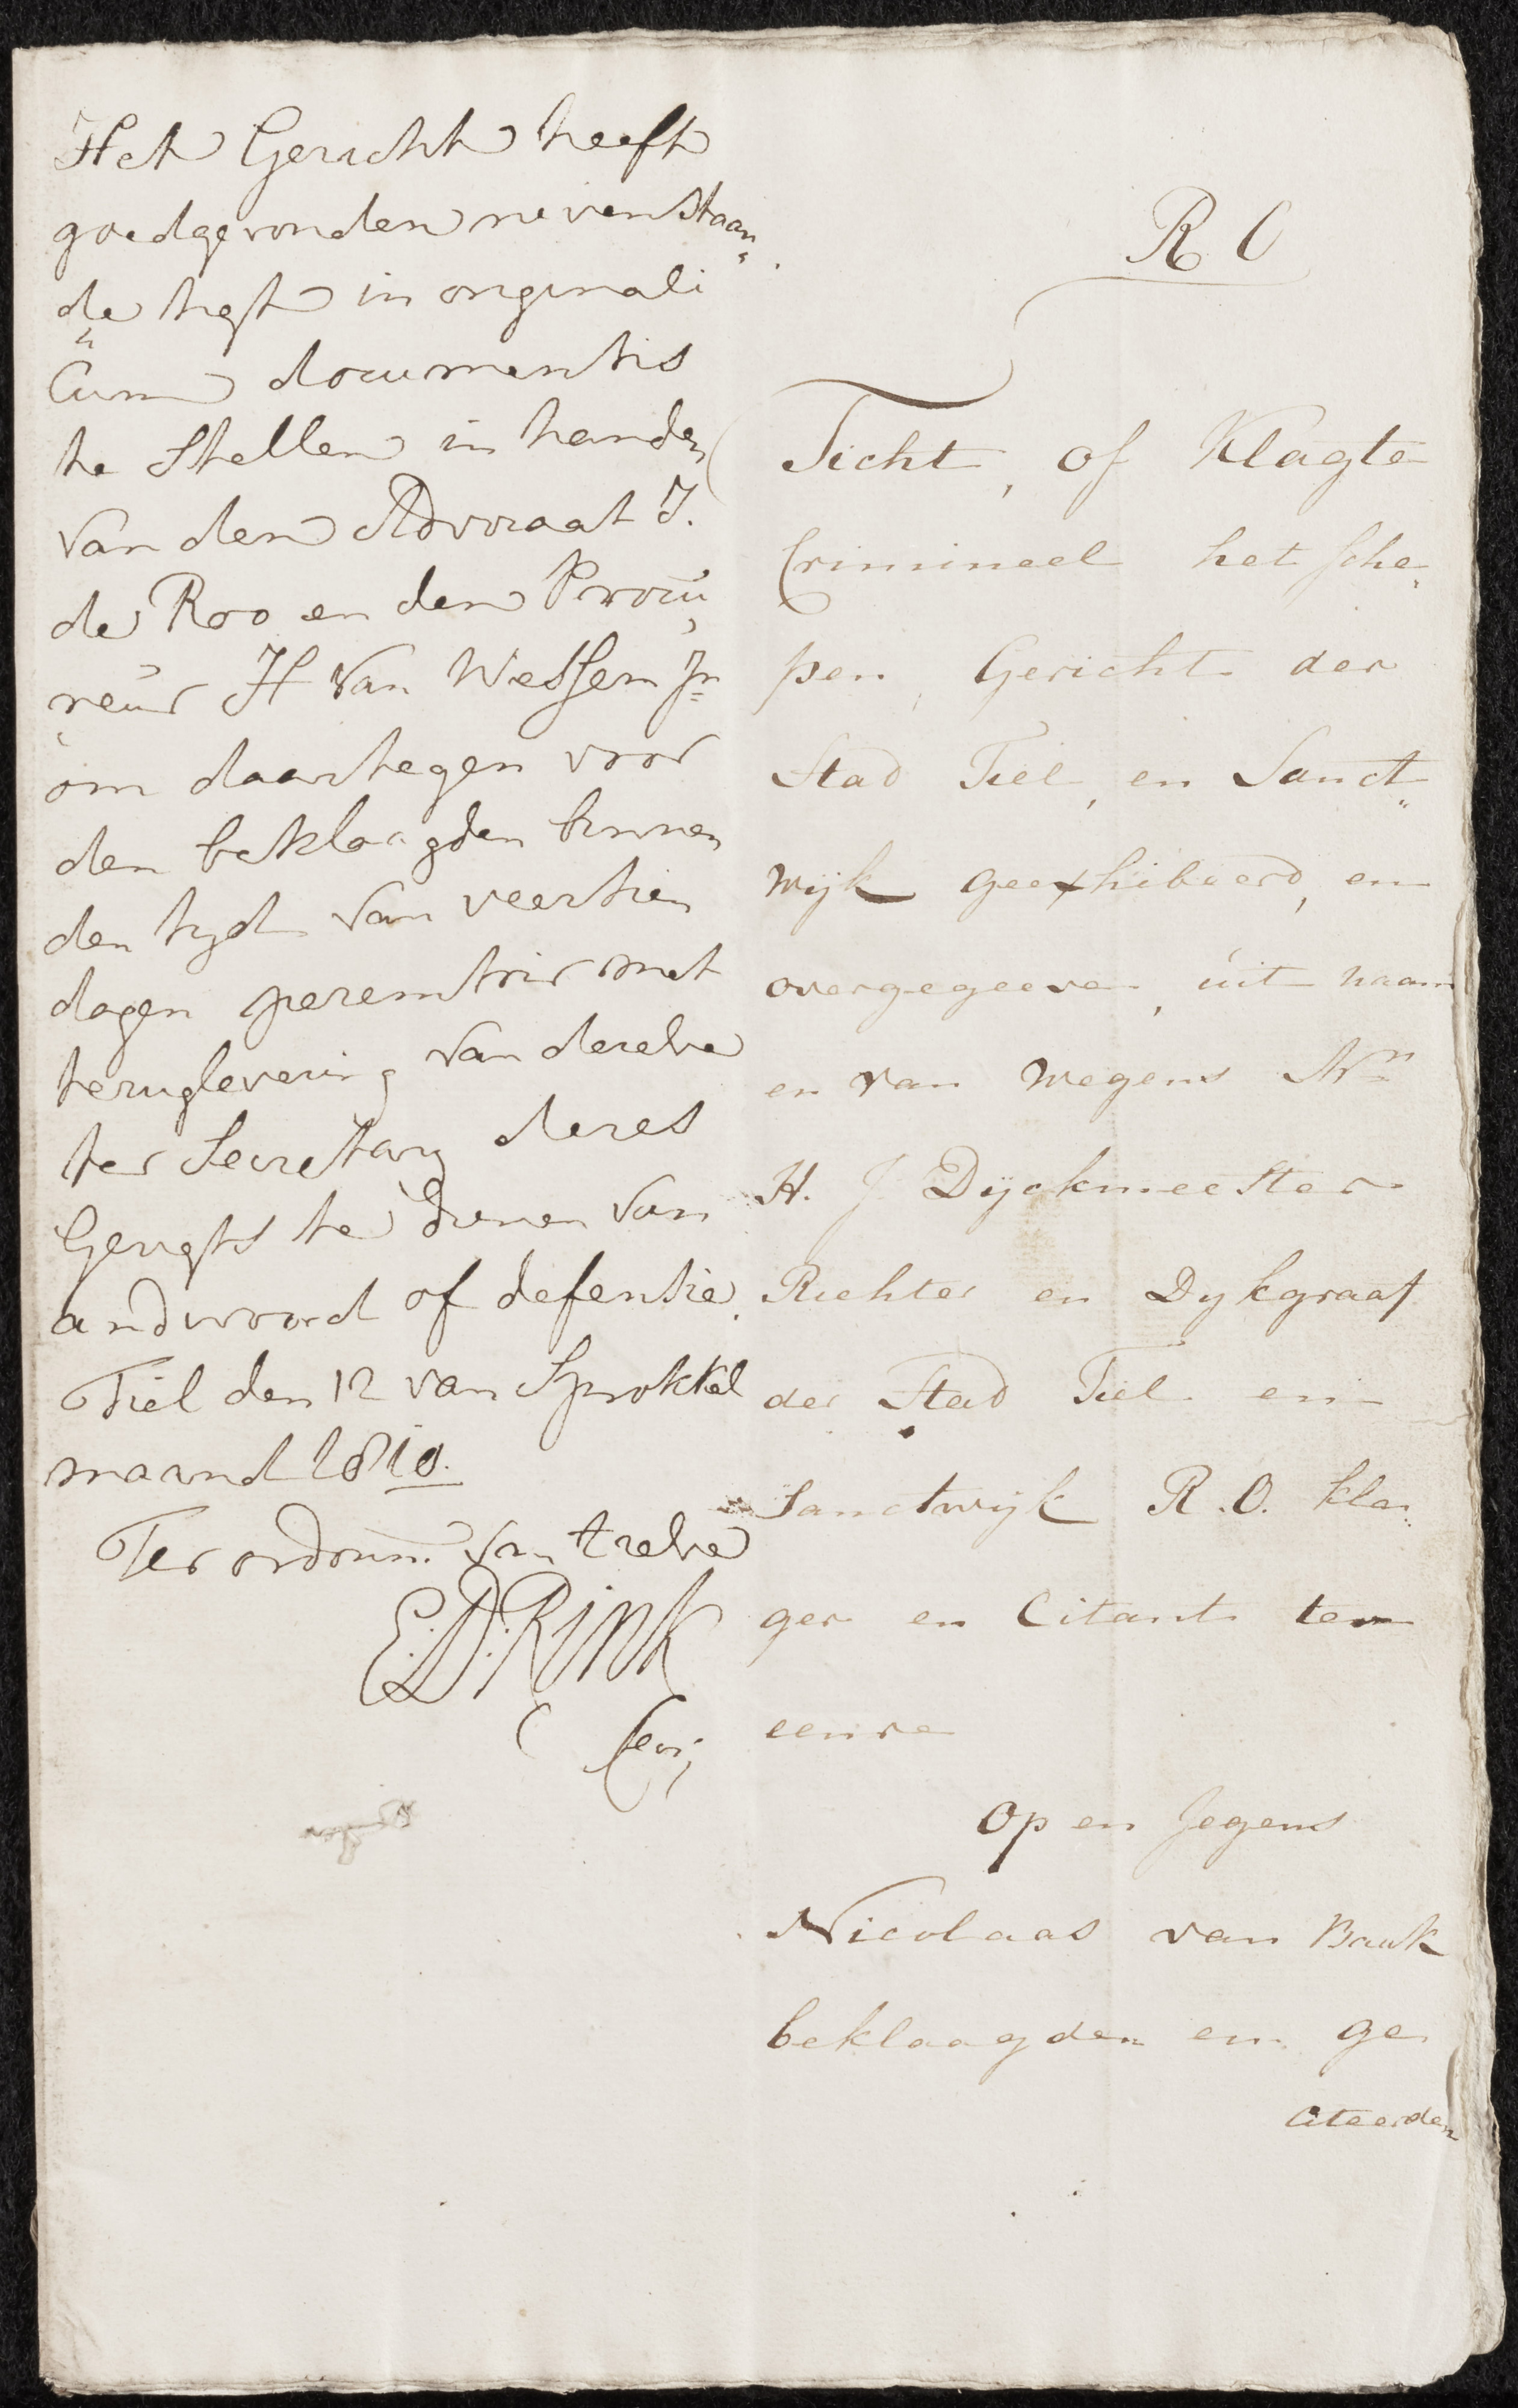 Het Gericht heeft
goedgevonden nevenstaan„
de tigt in originali
Cum documentis
te Stellen in handen
van den Advocaat J.
de Roo en den Procu„
reur H van Wessem Jr
om daartegen voor
den beklaagden binnen
den tyd van veertien
dagen peremtoir met
teruglevering van dezelve
ter Secretary dezes
Gerigts te dienen van
andwoord of defensie.
Tiel den 12 van Sprokkel
maand 1810.
Ter ordonn. van 't zelve
E:D:Rink
Secr;
R O
Ticht, of Klagte
Crimineel het Sche„
pen Gericht der
Stad Tiel, en Sanct„
wijk geexhibeerd, en
overgegeeven, uit naam
en van wegens Mr
H. J Dijckmeester
Richter en Dykgraaf
der Stad Tiel en
Sanctwijk R.O. kla„
ger en Citant ter
eenre
Op en Jegens
Nicolaas van Bauk
beklaagden en ge
Citeerden